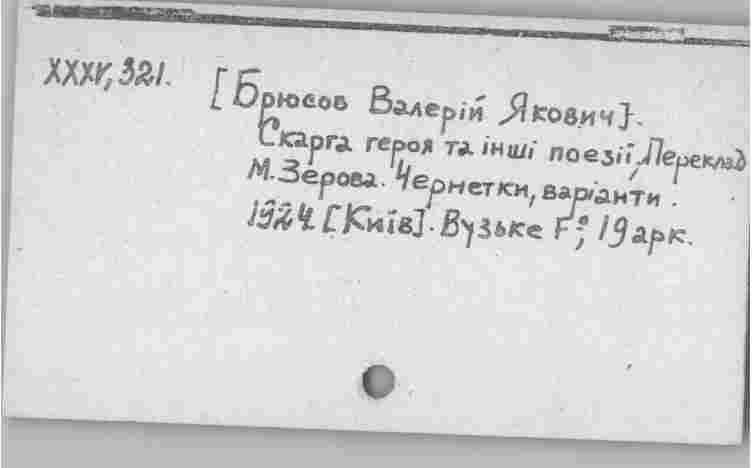 XXXV, 321.
[Брюсов Валерій Якович].
Скарга героя та інші поезії, Переклад
М. Зерова. Чернетки, варіанти.
1924 [Київ]. Вузьке F°; 19 арк.